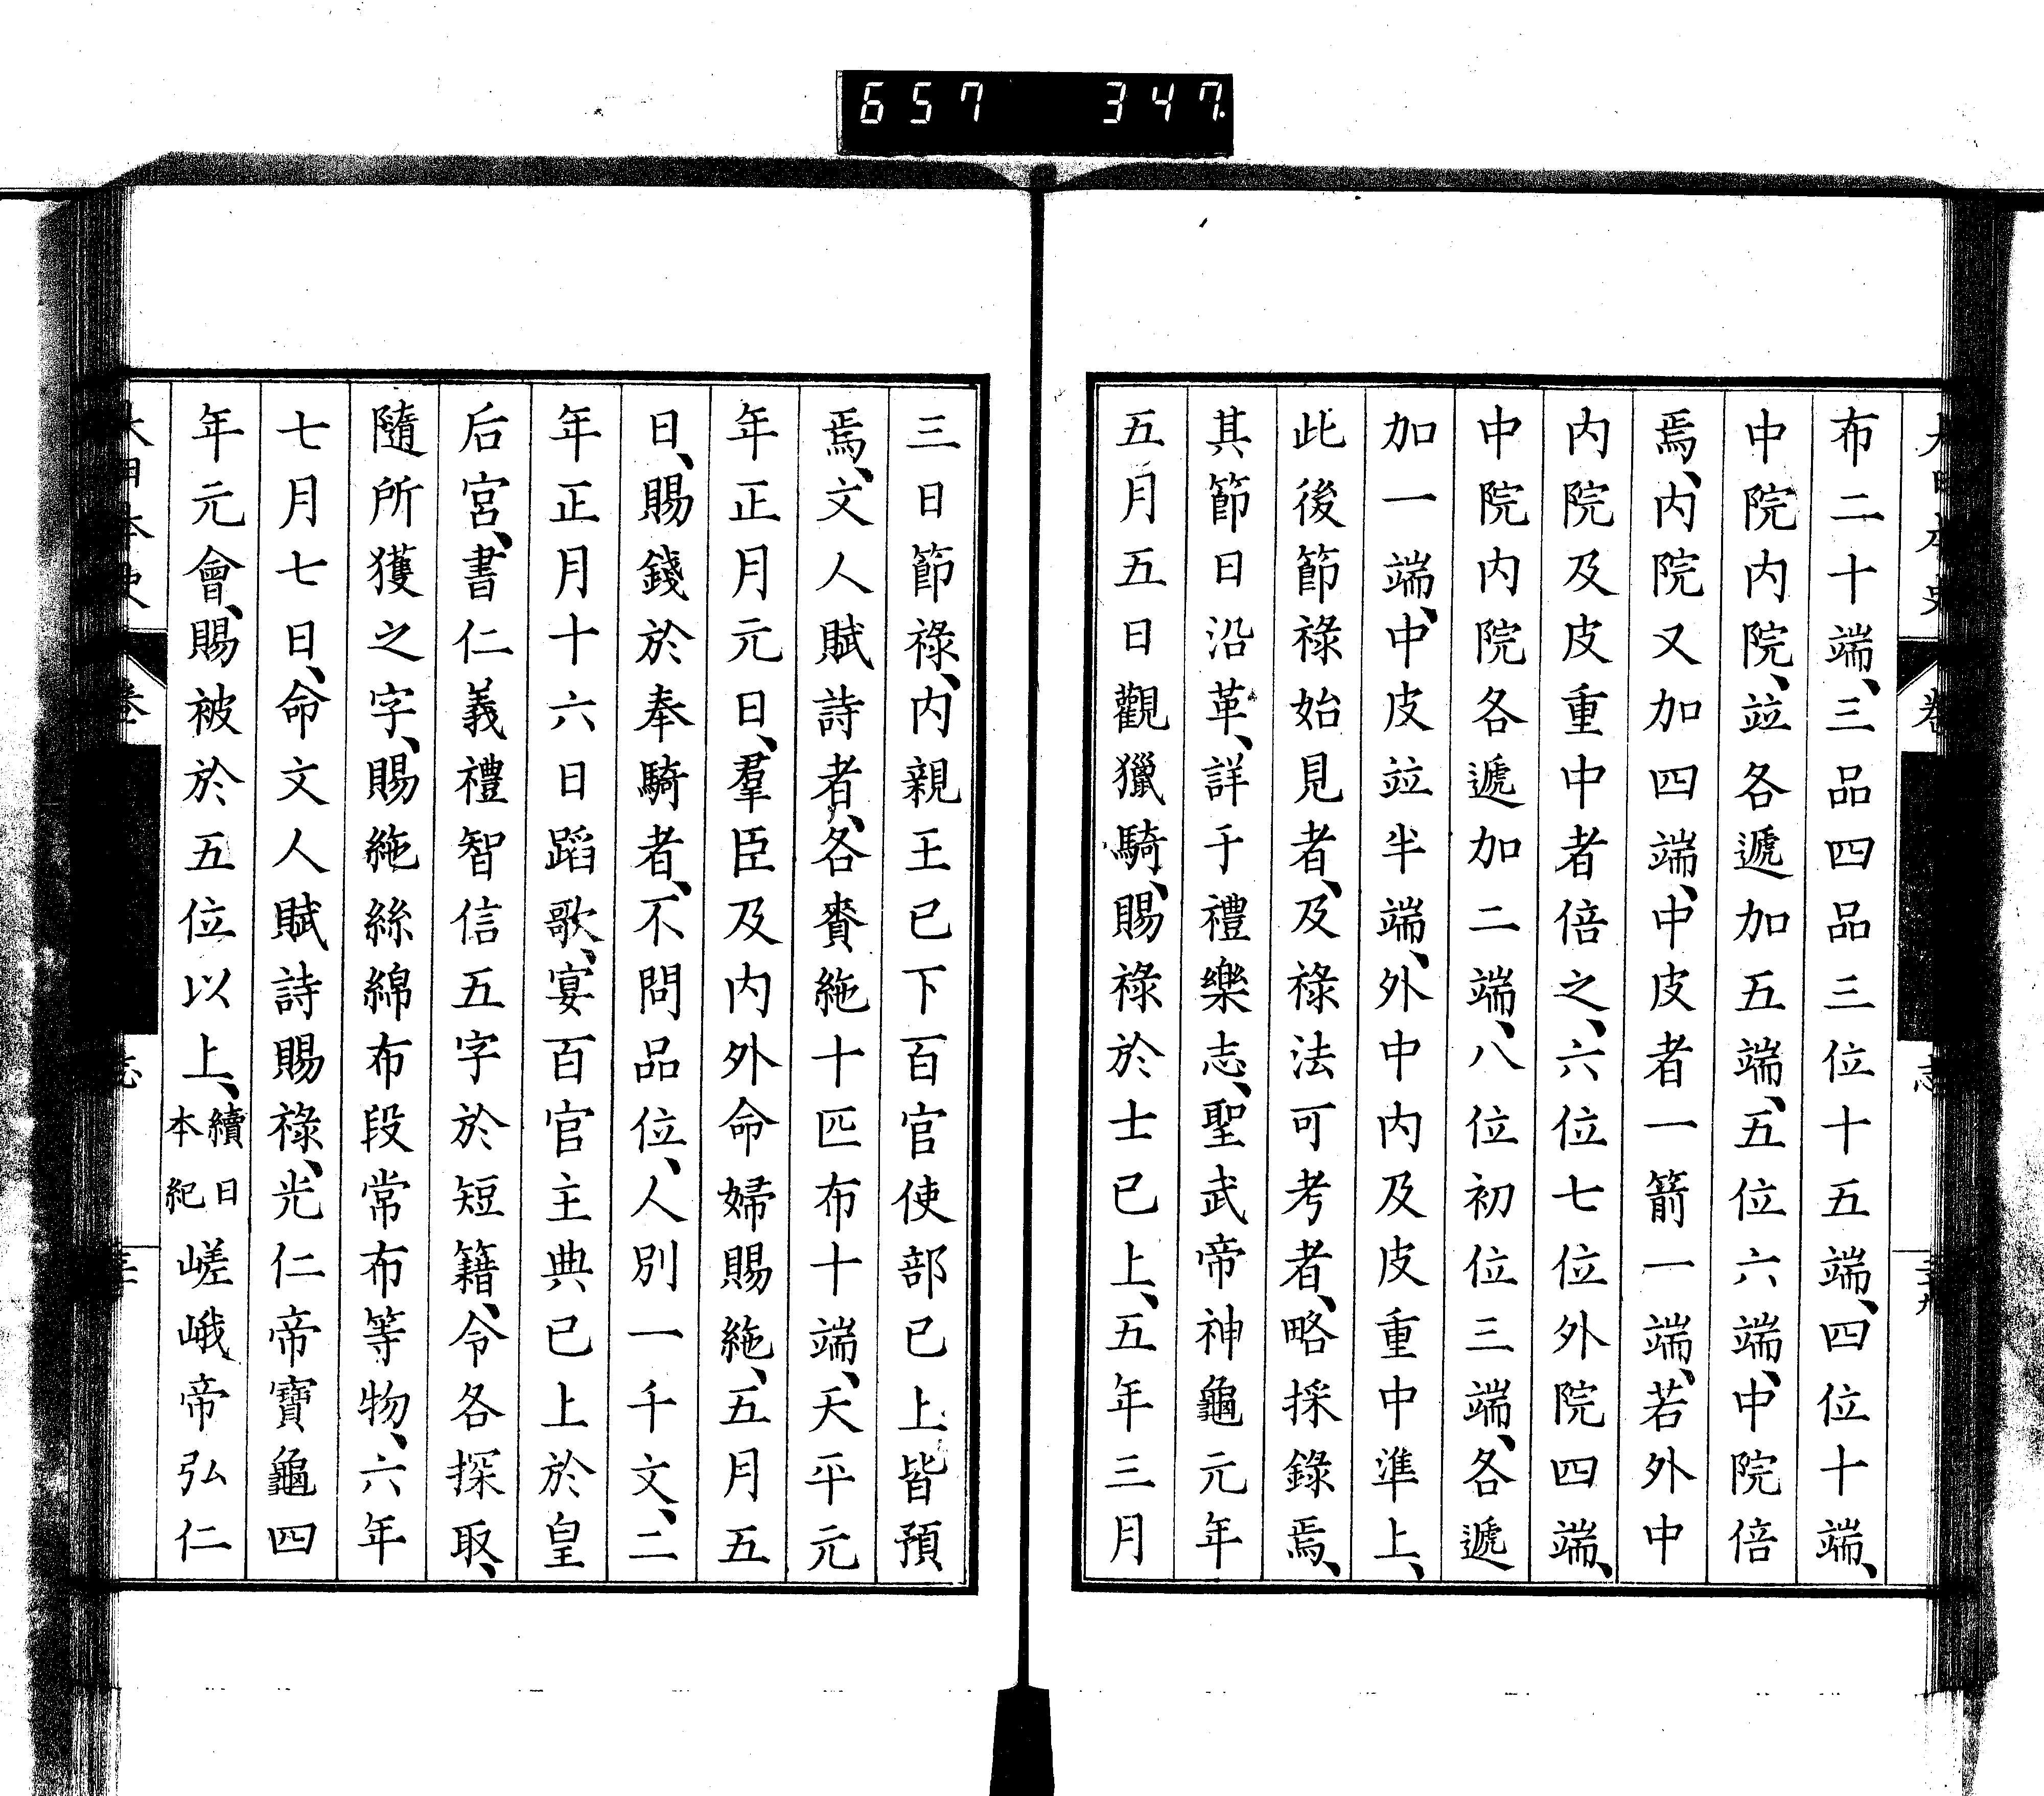 657 347
布二十端、三品四品三位十五端、四位十端、
中院内院、竝各遞加五端、五位六端、中院倍
焉、内院又加四端、中皮者一箭一端、若外中
内院及皮重中者倍之、六位七位外院四端、
中院内院各遞加二端、八位初位三端、各遞
加一端、中皮竝半端、外中内及皮重中準上、
此後節祿始見者、及祿法可考者、略採錄焉、
其節日沿革、詳于禮樂志、聖武帝神龜元年
五月五日觀獵騎、賜祿於士已上、五年三月
三日節祿、内親王已下百官使部已上皆預
焉、文人賦詩者、各賚絁十匹布十端、天平元
年正月元日、羣臣及内外命婦賜絁、五月五
日、賜錢於奉騎者、不問品位、人別一千文、二
年正月十六日蹈歌、宴百官主典已上於皇
后宮、書仁義禮智信五字於短籍、令各探取、
隨所獲之字、賜絁絲綿布段常布等物、六年
七月七日、命文人賦詩賜祿、光仁帝寶龜四
年元會、賜被於五位以上、續日本紀嵯峨帝弘仁